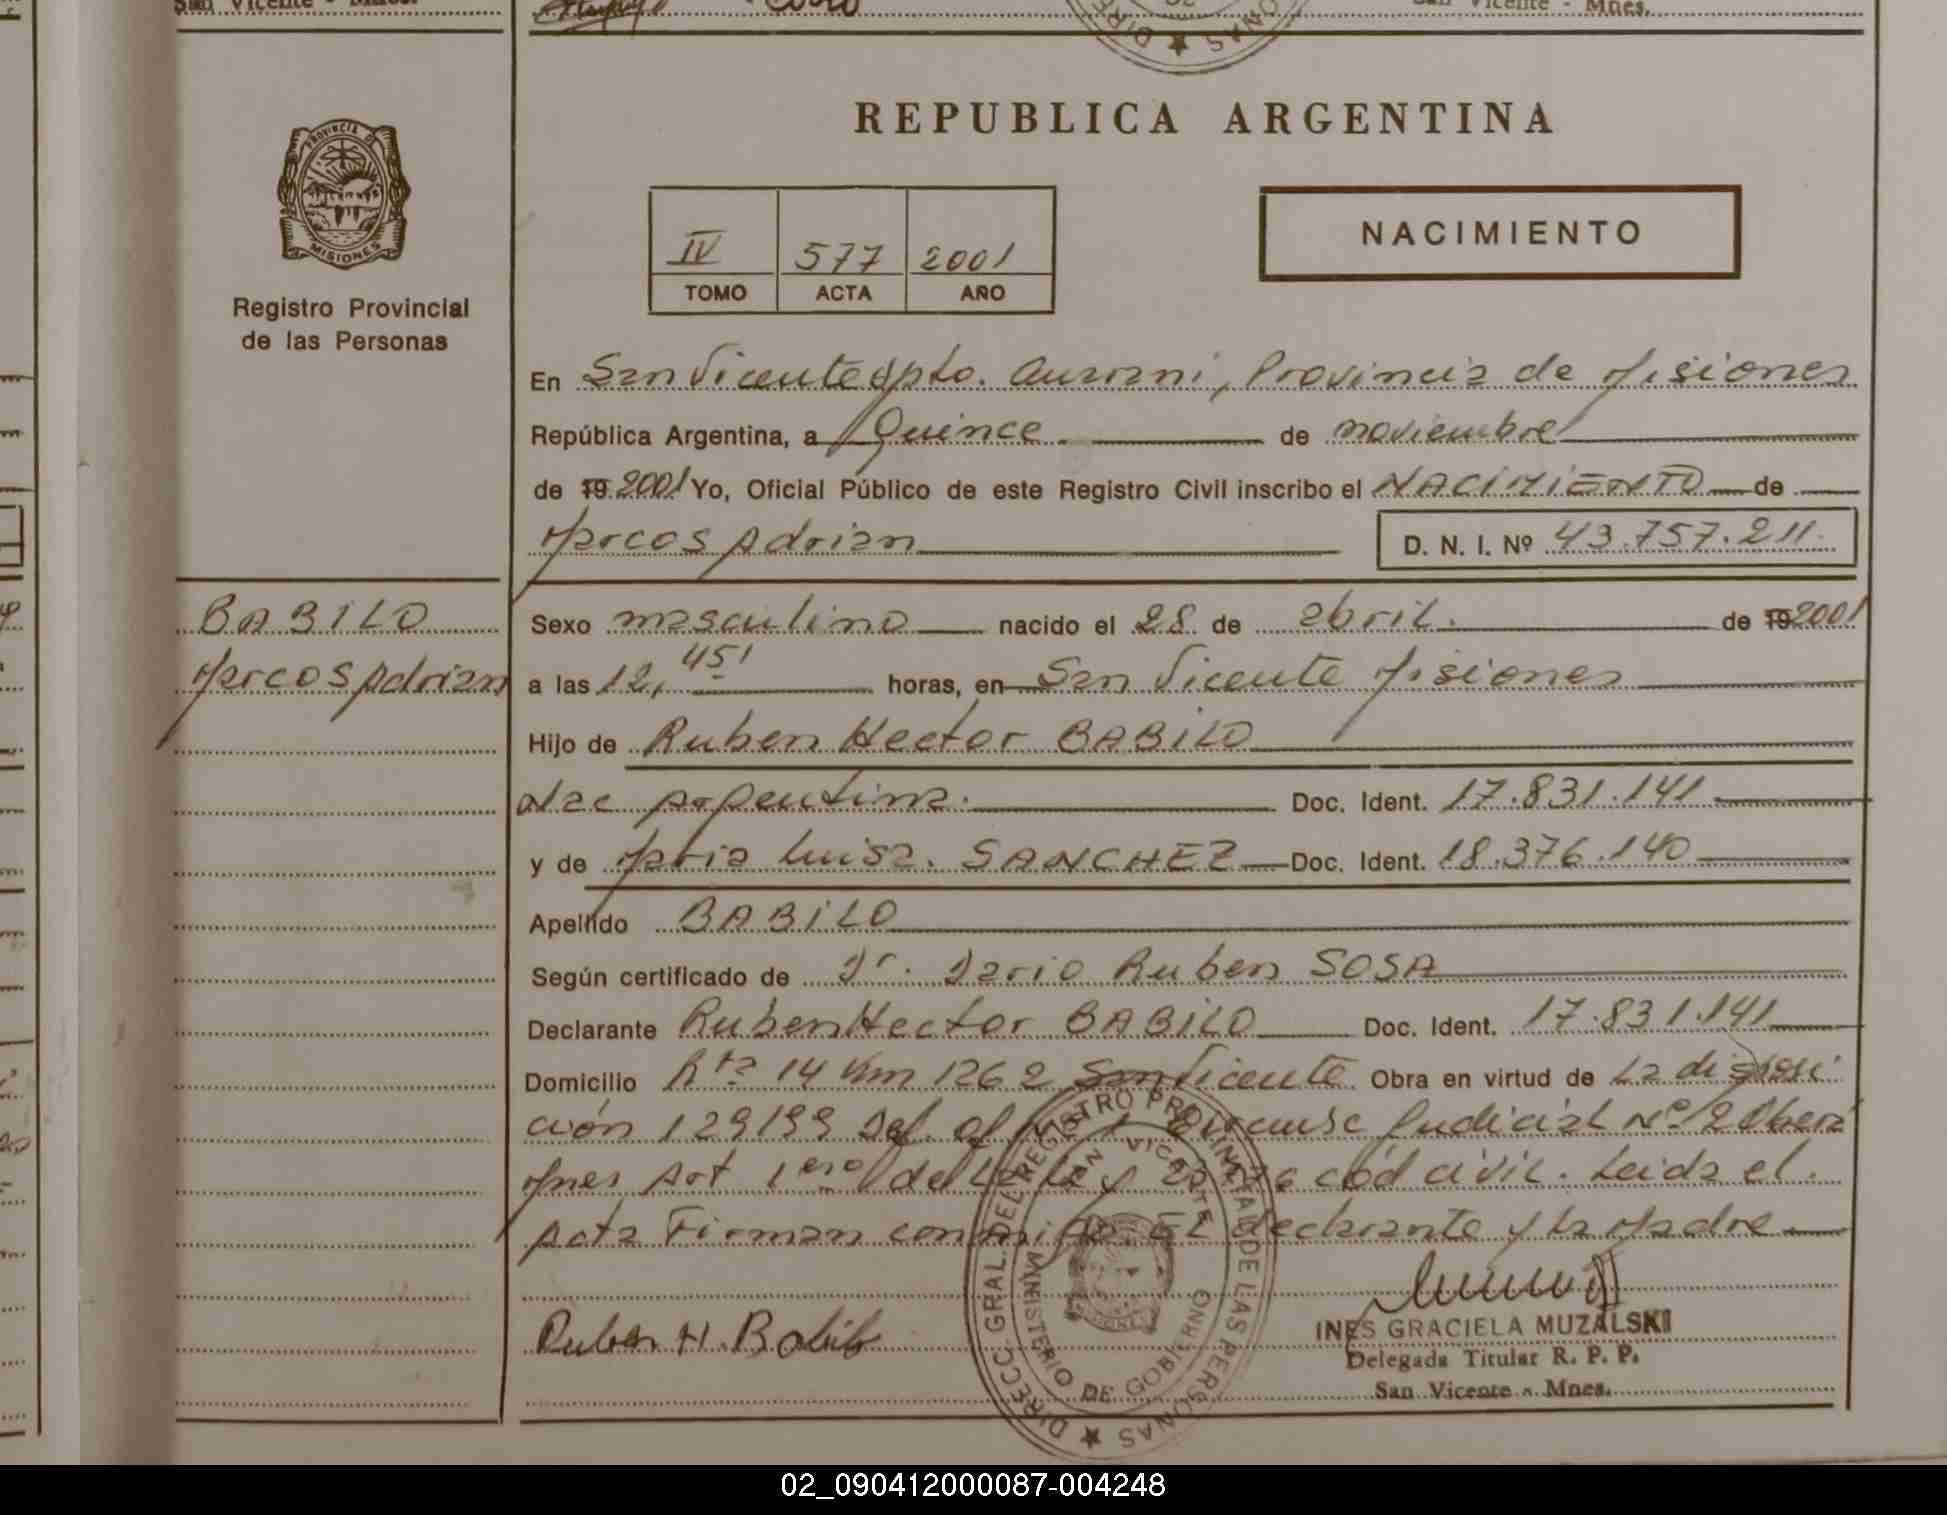 San Vicente - Mnes.
San Vicente - Mnes.
REPUBLICA ARGENTINA
PROVINCIA DE
MISIONES
Registro Provincial
de las Personas
IV 577 2001
TOMO ACTA AÑO
NACIMIENTO
En San Vicente dpto. Guarani, Provincia de Misiones
República Argentina, a Quince de noviembre
de 19 2001 Yo, Oficial Público de este Registro Civil inscribo el NACIMIENTO de
Marcos Adrian D. N. I. Nº 43.757.211.
BABILO
Marcos Adrian
Sexo masculino nacido el 28 de abril. de 19 2001
a las 12, 45' horas, en San Vicente Misiones
Hijo de Ruben Hector BABILO
Nac Argentina. Doc. Ident. 17.831.141
y de Maria Luisa. SANCHEZ Doc. Ident. 18.376.140
Apellido BABILO
Según certificado de Dr. Dario Ruben SOSA
Declarante Ruben Hector BABILO Doc. Ident. 17.831.141
Domicilio Rta 14 Km 1262 San Vicente. Obra en virtud de La disposi
ción 129199 Def. of Judicial Nº 2 Obera
Mnes Art 1ero de la ley cód civil. Leida el.
Acta Firman conmigo El declarante y la Madre
Ruben H. Babilo
INES GRACIELA MUZALSKI
Delegada Titular R. P. P.
San Vicente - Mnes.
DIRECC. GRAL. DEL REGISTRO PROVINCIAL DE LAS PERSONAS
SAN VICENTE
MINISTERIO DE GOBIERNO
02_090412000087-004248